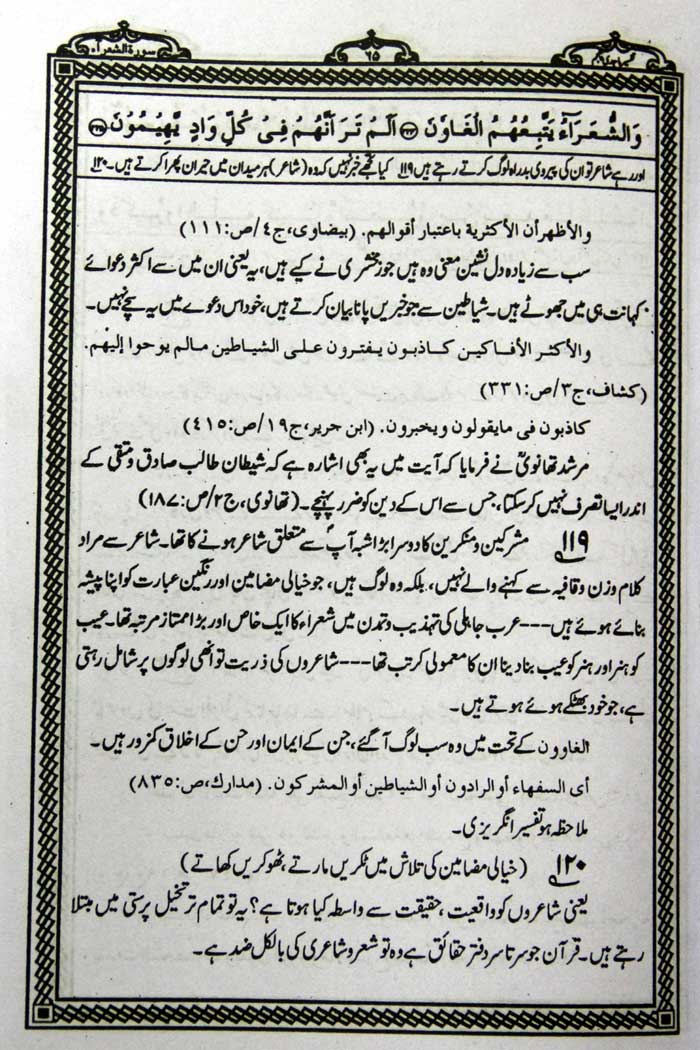 سورة الشعرآء
۶۵
وَالشُّعَرَآءُ يَتَّبِعُهُمُ الْغَاوٗنَ ﴿۲۲۴﴾ اَلَمْ تَرَ اَنَّهُمْ فِىْ كُلِّ وَادٍ يَّهِيْمُوْنَ ﴿۲۲۵﴾
اور رہے شاعر تو ان کی پیروی بدراہ لوگ کرتے رہتے ہیں ۱۱۹ کیا تجھے خبر نہیں کہ وہ (شاعر) ہر میدان میں حیران پھرا کرتے ہیں۔ ۱۲۰
والأظهر أن الأكثرية باعتبار أقوالهم. (بيضاوى، ج٤/ص:١١١)
سب سے زیادہ دل نشین معنی وہ ہیں جو زمخشری نے کیے ہیں، یہ یعنی ان میں سے اکثر دعوائے
کہانت ہی میں جھوٹے ہیں۔ شیاطین سے جو خبریں پانا بیان کرتے ہیں، خود اس دعوے میں یہ سچے نہیں۔
والأكثر الأفاكين كاذبون يفترون على الشياطين مالم يوحوا إليهم.
(كشاف، ج٣/ص:٣٣١)
كاذبون فى مايقولون ويخبرون. (ابن جرير، ج١٩/ص:٤١٥)
مرشد تھانویؒ نے فرمایا کہ آیت میں یہ بھی اشارہ ہے کہ شیطان طالب صادق و متقی کے
اندر ایسا تصرف نہیں کرسکتا، جس سے اس کے دین کو ضرر پہنچے۔ (تھانوی، ج۲/ص:۱۸۷)
۱۱۹ مشرکین و منکرین کا دوسرا بڑا شبہ آپؐ سے متعلق شاعر ہونے کا تھا۔ شاعر سے مراد
کلام وزن وقافیہ سے کہنے والے نہیں، بلکہ وہ لوگ ہیں، جو خیالی مضامین اور رنگین عبارت کو اپنا پیشہ
بنائے ہوئے ہیں---عرب جاہلی کی تہذیب وتمدن میں شعراء کا ایک خاص اور بڑا ممتاز مرتبہ تھا۔ عیب
کو ہنر اور ہنر کو عیب بنا دینا ان کا معمولی کرتب تھا---شاعروں کی ذریت تو انھی لوگوں پر شامل رہتی
ہے، جو خود بھٹکے ہوئے ہوتے ہیں۔
الغاوون کے تحت میں وہ سب لوگ آگئے، جن کے ایمان اور جن کے اخلاق کمزور ہیں۔
أى السفهاء أو الرادون أو الشياطين أو المشركون. (مدارك، ص:٨٣٥)
ملاحظہ ہو تفسیر انگریزی۔
۱۲۰ (خیالی مضامین کی تلاش میں ٹکریں مارتے، ٹھوکریں کھاتے)
یعنی شاعروں کو واقعیت، حقیقت سے واسطہ کیا ہوتا ہے؟ یہ تو تمام تر تخیل پرستی میں مبتلا
رہتے ہیں۔ قرآن جو سرتاسر دفتر حقائق ہے وہ تو شعر و شاعری کی بالکل ضد ہے۔